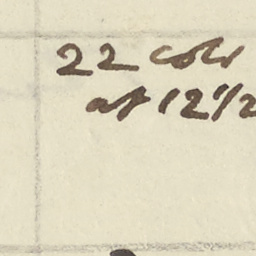 22 cols
at 12 1/2